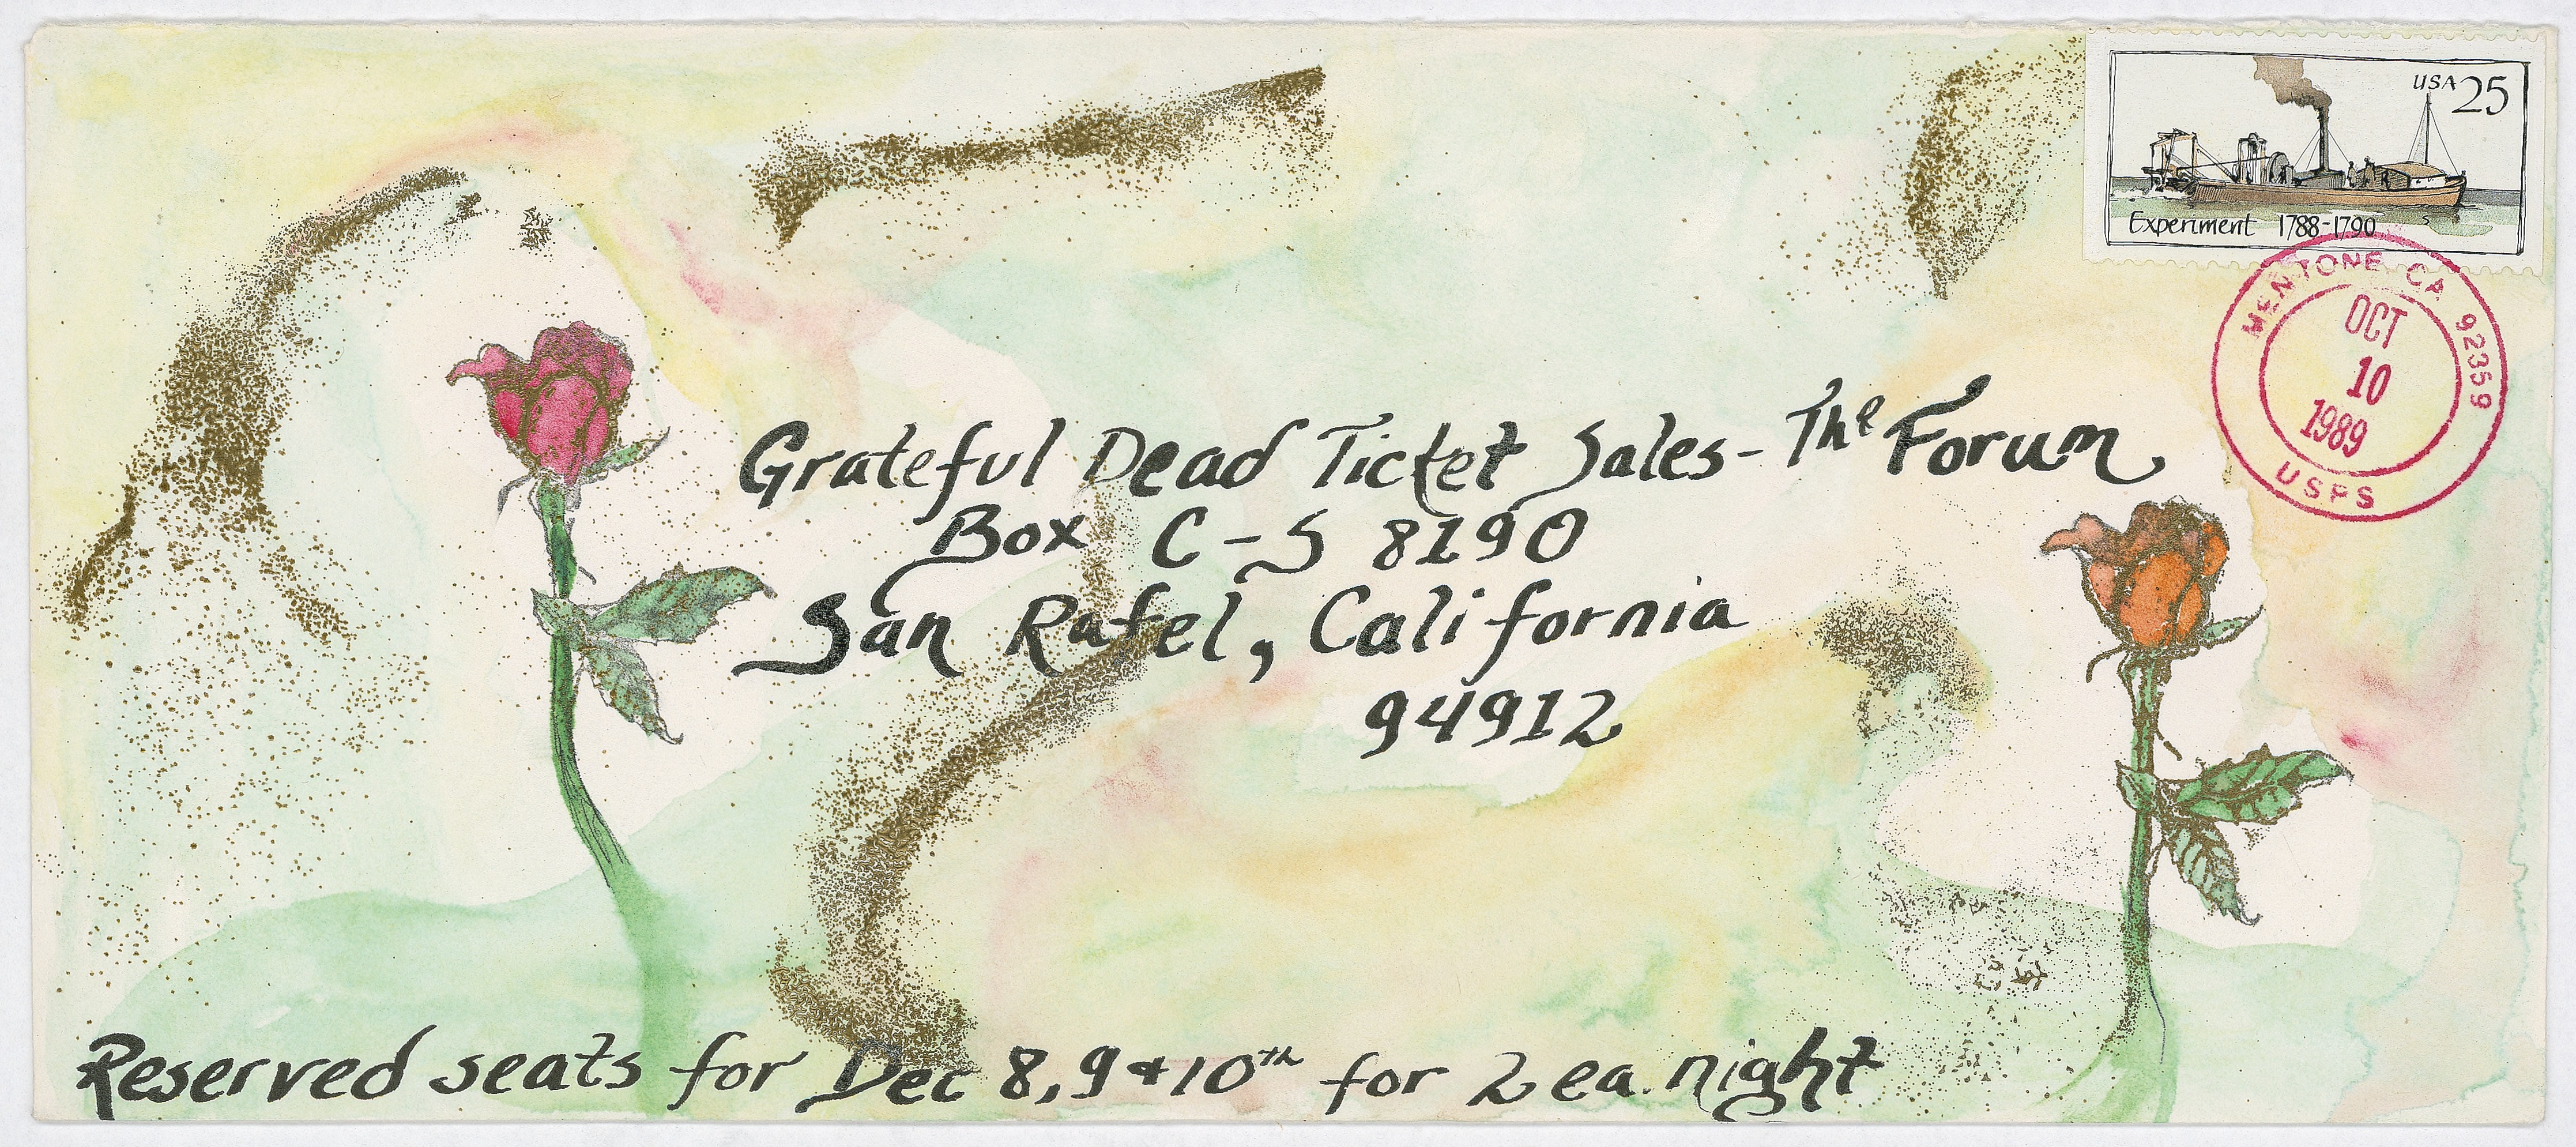 USA 25
Experiment 1788-1790
MENTONE CA 92359
OCT
10
1989
USPS
Grateful Dead Ticket Sales - The Forum
Box C-S 8190
San Rafel, California
94912
Reserved seats for Dec 8, 9 & 10th for 2 ea. night